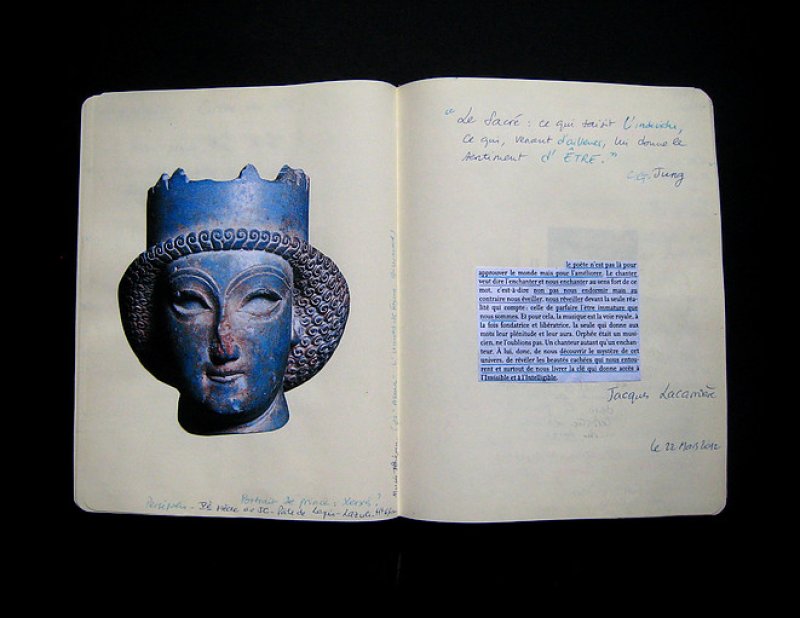 Portrait de prince : Xerxès ?
Persépolis - Vè siècle av JC - Pâte de Lapis-Lazuli
"Le Sacré : ce qui saisit l'individu,
ce qui, venant d'ailleurs, lui donne le
sentiment d'ÊTRE."
Jung
le poète n'est pas là pour
approuver le monde mais pour l'améliorer. Le chanter
veut dire l'enchanter et nous enchanter au sens fort de ce
mot, c'est-à-dire non pas nous endormir mais au
contraire nous éveiller, nous réveiller devant la seule réa-
lité qui compte : celle de parfaire l'être immature que
nous sommes. Et pour cela, la musique est la voie royale, à
la fois fondatrice et libératrice, la seule qui donne aux
mots leur plénitude et leur aura. Orphée était un musi-
cien, ne l'oublions pas. Un chanteur autant qu'un enchan-
teur. À lui, donc, de nous découvrir le mystère de cet
univers, de révéler les beautés cachées qui nous entou-
rent et surtout de nous livrer la clé qui donne accès à
l'Invisible et à l'Intelligible.
Jacques Lacarrière
le 22 Mars 2012